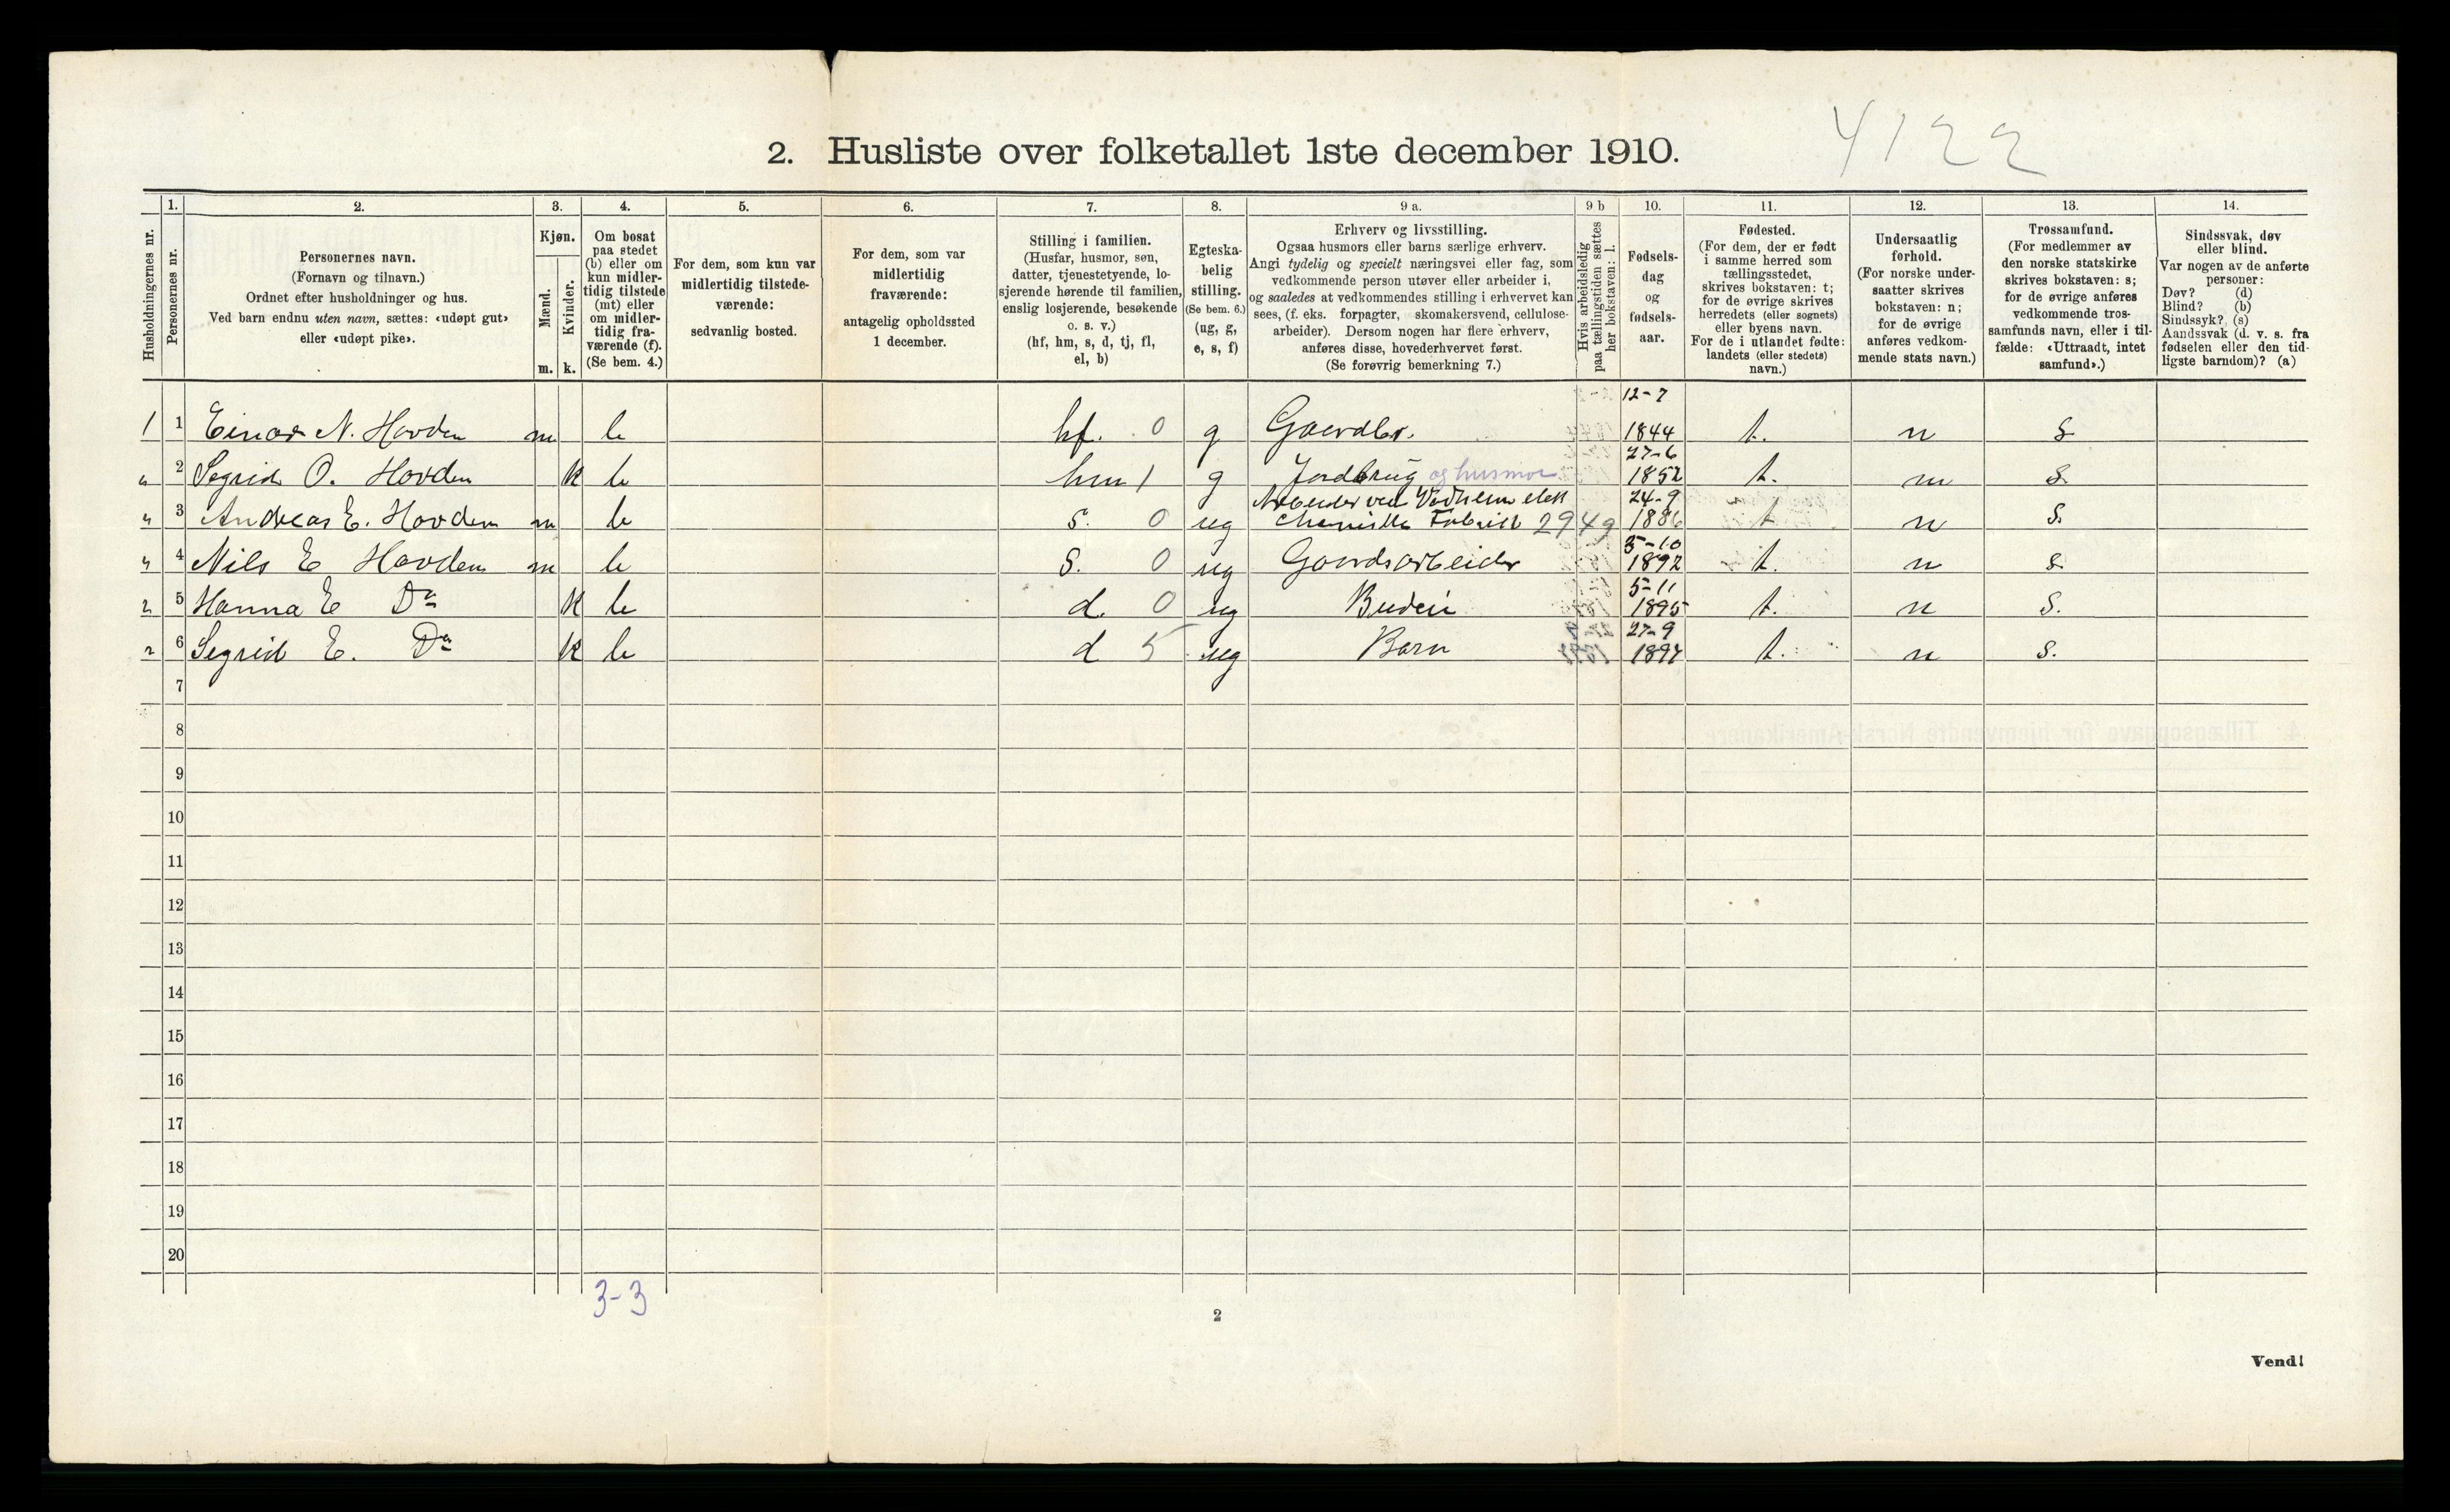 4122
2. Husliste over folketallet 1ste december 1910.
1. 2. 3. 4. 5. 6. 7. 8. 9 a. 9 b 10. 11. 12. 13. 14.
Husholdningernes nr.
Personernes nr.
Personernes navn.
(Fornavn og tilnavn.)
Ordnet efter husholdninger og hus.
Ved barn endnu uten navn, sættes: «udøpt gut»
eller «udøpt pike».
Kjøn.
Mænd.
Kvinder.
m. k.
Om bosat
paa stedet
(b) eller om
kun midler-
tidig tilstede
(mt) eller
om midler-
tidig fra-
værende (f).
(Se bem. 4.)
For dem, som kun var
midlertidig tilstede-
værende:
sedvanlig bosted.
For dem, som var
midlertidig
fraværende:
antagelig opholdssted
1 december.
Stilling i familien.
(Husfar, husmor, søn,
datter, tjenestetyende, lo-
sjerende hørende til familien,
enslig losjerende, besøkende
o. s. v.)
(hf, hm, s, d, tj, fl,
el, b)
Egteska-
belig
stilling.
(Se bem. 6.)
(ug, g,
e, s, f)
Erhverv og livsstilling.
Ogsaa husmors eller barns særlige erhverv.
Angi tydelig og specielt næringsvei eller fag, som
vedkommende person utøver eller arbeider i,
og saaledes at vedkommendes stilling i erhvervet kan
sees, (f. eks. forpagter, skomakersvend, cellulose-
arbeider). Dersom nogen har flere erhverv,
anføres disse, hovederhvervet først.
(Se forøvrig bemerkning 7.)
Hvis arbeidsledig
paa tællingstiden sættes
her bokstaven: l.
Fødsels-
dag
og
fødsels-
aar.
Fødested.
(For dem, der er født
i samme herred som
tællingsstedet,
skrives bokstaven: t;
for de øvrige skrives
herredets (eller sognets)
eller byens navn.
For de i utlandet fødte:
landets (eller stedets)
navn.)
Undersaatlig
forhold.
(For norske under-
saatter skrives
bokstaven: n;
for de øvrige
anføres vedkom-
mende stats navn.)
Trossamfund.
(For medlemmer av
den norske statskirke
skrives bokstaven: s;
for de øvrige anføres
vedkommende tros-
samfunds navn, eller i til-
fælde: «Uttraadt, intet
samfund».)
Sindssvak, døv
eller blind.
Var nogen av de anførte
personer:
Døv? (d)
Blind? (b)
Sindssyk? (s)
Aandssvak (d. v. s. fra
fødselen eller den tid-
ligste barndom)? (a)
12-7
1 1 Einar N. Hovden m b hf. 0 g Gaardbr. 1844 t. n s
27-6
" 2 Segrid O. Hovden k b hm 1 g Jordbrug og husmor 1852 t. n s.
Arbeider ved Vadheim elek 24-9
" 3 Andreas E. Hovden m b s. 0 ug Fabrik 2949 1886 t n s.
5-10
" 4 Nils E Hovden m b s. 0 ug Gaardsarbeider 1892 t. n s
5-11
" 5 Hanna E Do k b d. 0 ug Budeie 1895 t. n s.
27-9
" 6 Segrid E. Do k b d 5 ug Barn 1897 t. n s.
7
8
9
10
11
12
13
14
15
16
17
18
19
20
3-3
2
Vend!